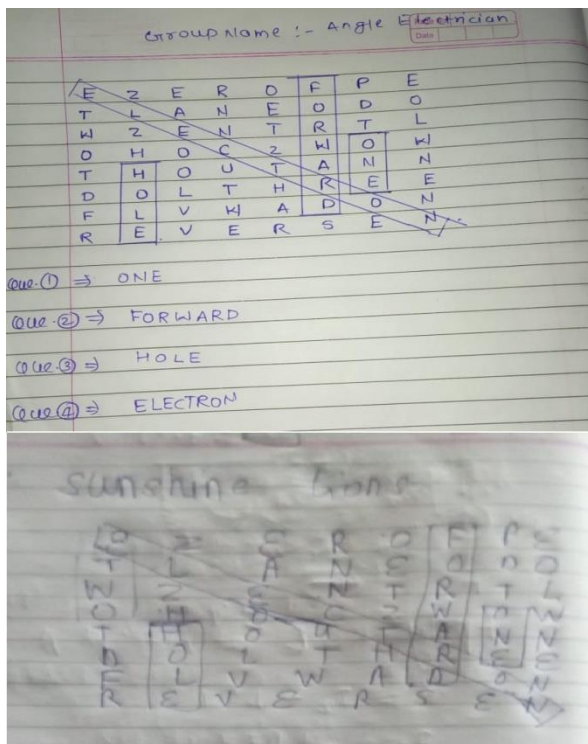 Group Name :- Angle Electrician
Date
E Z E R O F P E
T L A N E O D O
W Z E N T R T L
O H O C Z W O W
T H O U T A N N
D O L T H R E E
F L V W A D O N
R E V E R S E N
Que.① ⇒ ONE
Que.② ⇒ FORWARD
Que.③ ⇒ HOLE
Que.④ ⇒ ELECTRON
Sunshine lions
Z E R O F P E
T L A N E O D O
W Z E N T R T L
O H O C W O W
T H O U T A N N
D O L T H R E E
F L V W A D O N
R E V E R S E N